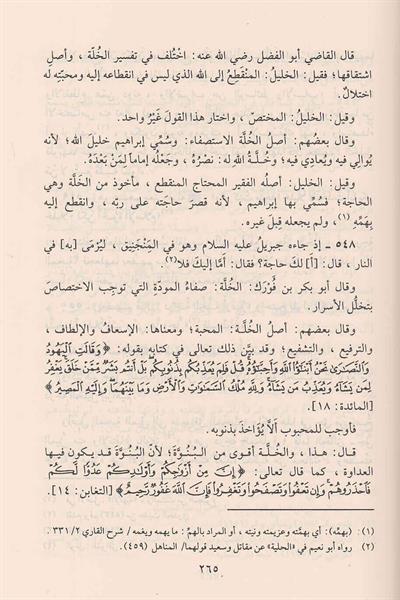 قال القاضي أبو الفضل رضي الله عنه: اخْتُلف في تفسير الخُلّة، وأصلِ
اشتقاقها؛ فقيل: الخليلُ: المنْقَطِعُ إلى الله الذي ليس في انقطاعه إليه ومحبّتِه له
اختلالٌ.
وقيل: الخليلُ: المختصّ، واختار هذا القولَ غَيْرُ واحد.
وقال بعضُهم: أصلُ الخُلَّة الاستصفاء؛ وسُمِّي إبراهيم خليلَ الله؛ لأنه
يُوالي فيه ويُعادِي فيه؛ وخُلَّةُ اللهِ له: نصْرُهُ، وجَعْلُه إماماً لِمَنْ بَعْدَهُ.
وقيل: الخليل: أصلُه الفقير المحتاج المنقطع، مأخوذ من الخَلَّة وهي
الحاجة؛ فسُمِّي بها إبراهيم، لأنه قصرَ حاجَته على ربِّه، وانقطع إليه
بِهَمِّهِ (١)، ولم يجعله قِبلَ غيره.
٥٤٨ ـ إذ جاءه جبريلُ عليه السلام وهو في المَنْجَنِيق، ليُرْمَى [به] في
النار، قال: [أ] لكَ حاجة؟ فقال: أمّا إليكَ فلا(٢).
وقال أبو بكر بن فُوْرَك: الخُلّة: صفاءُ المودّة التي توجِب الاختصاصَ
بتخلُّل الأسرار.
وقال بعضهم: أصل الخُلَّة: المحبة؛ ومعناها: الإسعافُ والإلطاف،
والترفيع ، والتشفيع؛ وقد بيَّن ذلك تعالى في كتابه بقوله: ﴿ وَقَالَتِ الْيَهُودُ
وَالنَّصَارَىٰ نَحْنُ أَبْنَاءُ اللَّهِ وَأَحِبَّاؤُهُ قُلْ فَلِمَ يُعَذِّبُكُم بِذُنُوبِكُم بَلْ أَنتُم بَشَرٌ مِّمَّنْ خَلَقَ يَغْفِرُ
لِمَن يَشَاءُ وَيُعَذِّبُ مَن يَشَاءُ وَلِلَّهِ مُلْكُ السَّمَاوَاتِ وَالْأَرْضِ وَمَا بَيْنَهُمَا وَإِلَيْهِ الْمَصِيرُ ﴾
[المائدة: ١٨].
فأوجب للمحبوب ألاَّ يُؤَاخَذ بذنوبه.
قال: هـذا ، والخُلَّة أقوى من البُنُوَّة؛ لأنّ البُنُوَّة قد يكون فيها
العداوة، كما قال تعالى: ﴿ إِنَّ مِنْ أَزْوَاجِكُمْ وَأَوْلَادِكُمْ عَدُوًّا لَّكُمْ
فَاحْذَرُوهُمْ وَإِن تَعْفُوا وَتَصْفَحُوا وَتَغْفِرُوا فَإِنَّ اللَّهَ غَفُورٌ رَّحِيمٌ ﴾ [التغابن: ١٤].
(١) : (بهمِّه): أي بهمَّته وعزيمته ونيته ، أو المراد بالهمِّ : ما يهمه ويغمه/ شرح القاري ٣٣١/٢.
(٢) رواه أبو نعيم في «الحلية» عن مقاتل وسعيد قولهما/ المناهل (٤٥٩).
٢٦٥